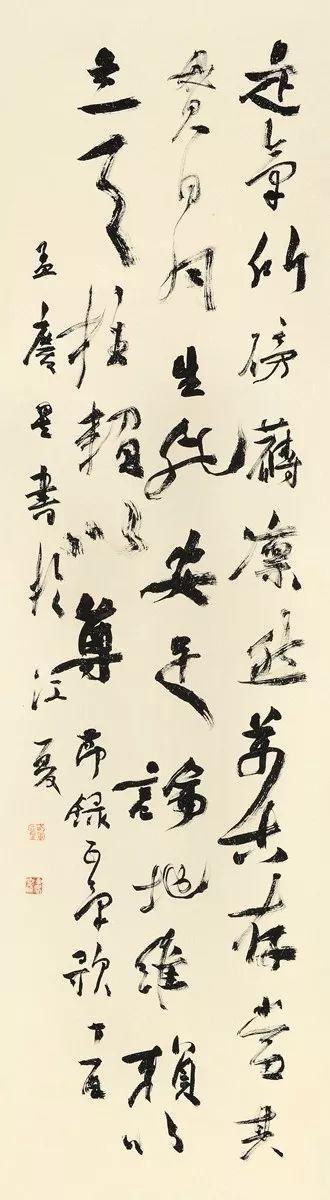 是氣所磅礴凛然萬古存當其
貫日月生死安足論地維賴以
立天柱賴以尊 節録正氣歌丁酉
孟慶星書於江夏